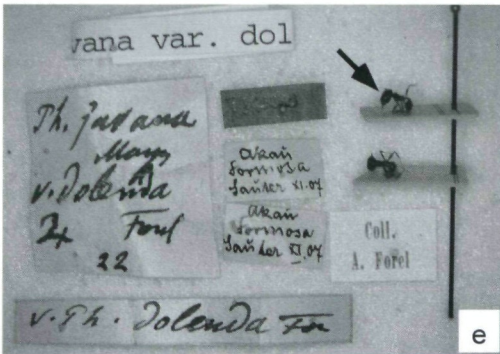 vana var. dol
Th. javana
Mayr
v. Dolenda
Forel
22
Akau
Formosa
Sauter XI.07
Akau
Formosa
Sauter XI.07
Coll.
A. Forel
v. Th. Dolenda For
e